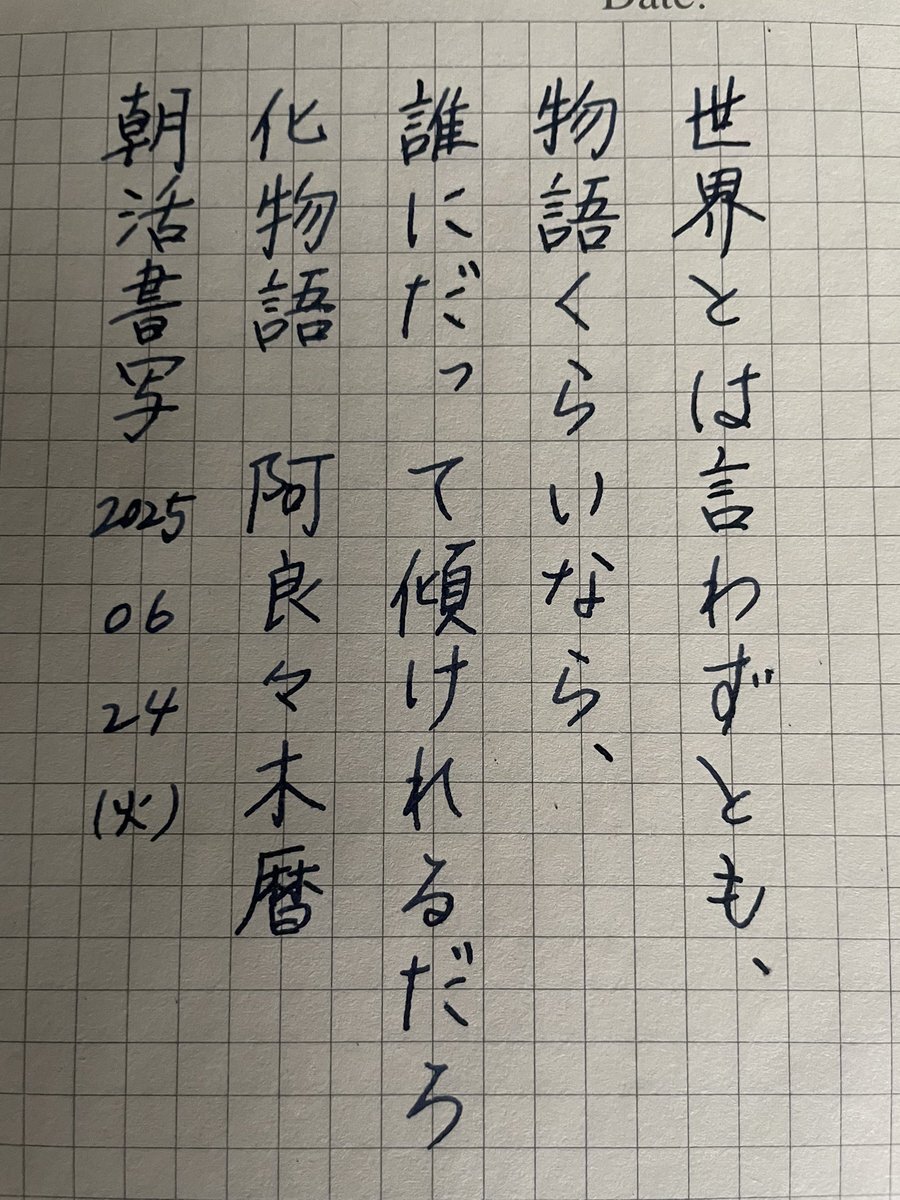 Date.
世界とは言わずとも、
物語くらいなら、
誰にだって傾けれるだろ
化物語 阿良々木暦
朝活書写 2025 06 24 (火)